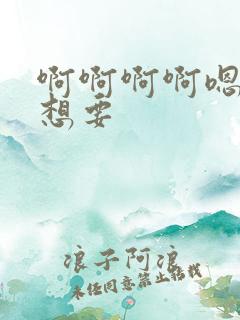 啊啊啊啊嗯
想要
浪子阿浪
未经同意禁止转载